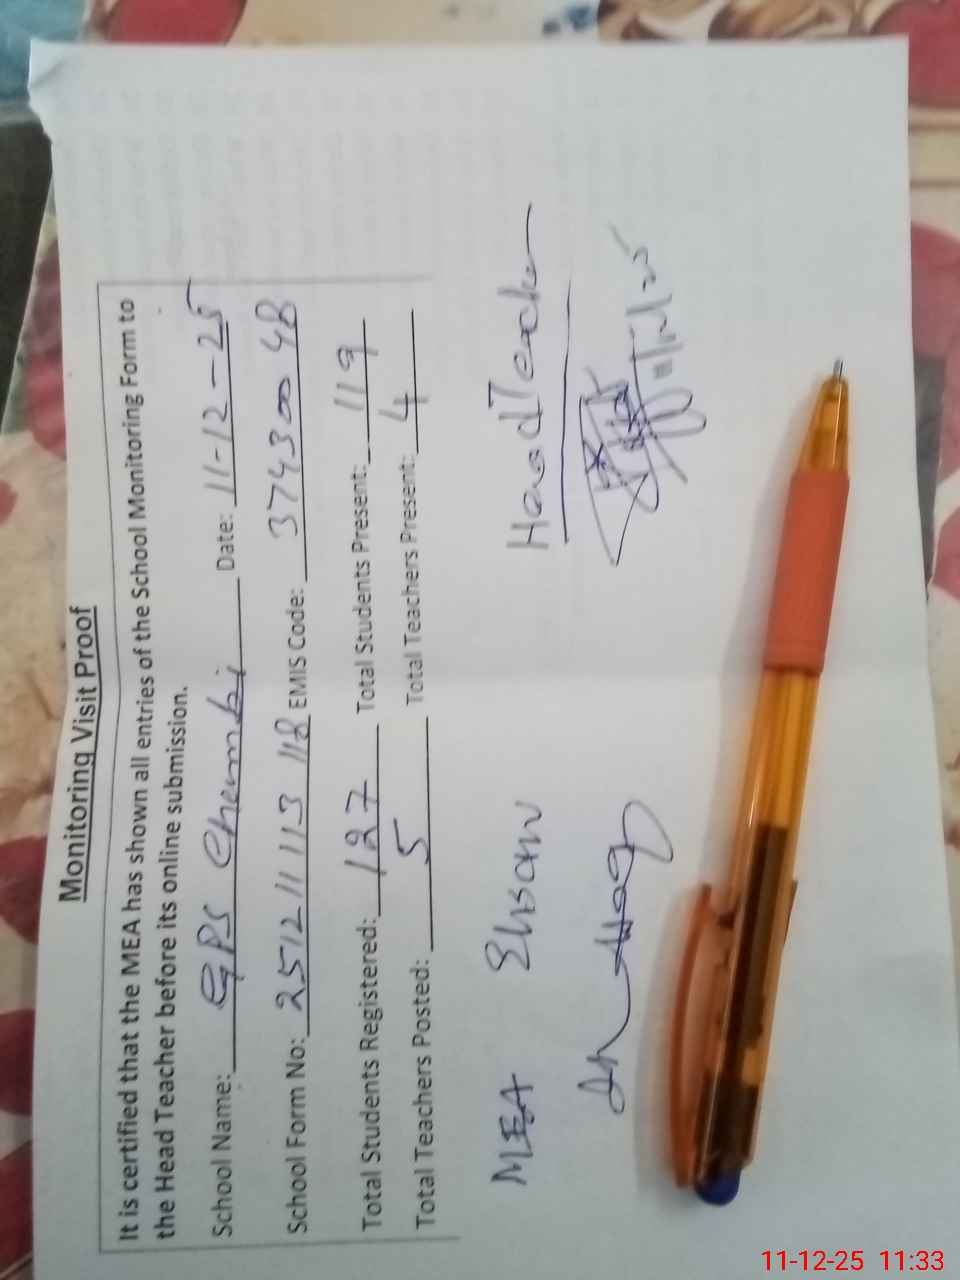 Monitoring Visit Proof
It is certified that the MEA has shown all entries of the School Monitoring Form to
the Head Teacher before its online submission.
School Name: GPS Chembi Date: 11-12-25
School Form No: 25121111318 EMIS Code: 37430048
Total Students Registered: 127 Total Students Present: 119
Total Teachers Posted: 5 Total Teachers Present: 4
MEA Ehsan Head Teacher
11-12-25 11:33